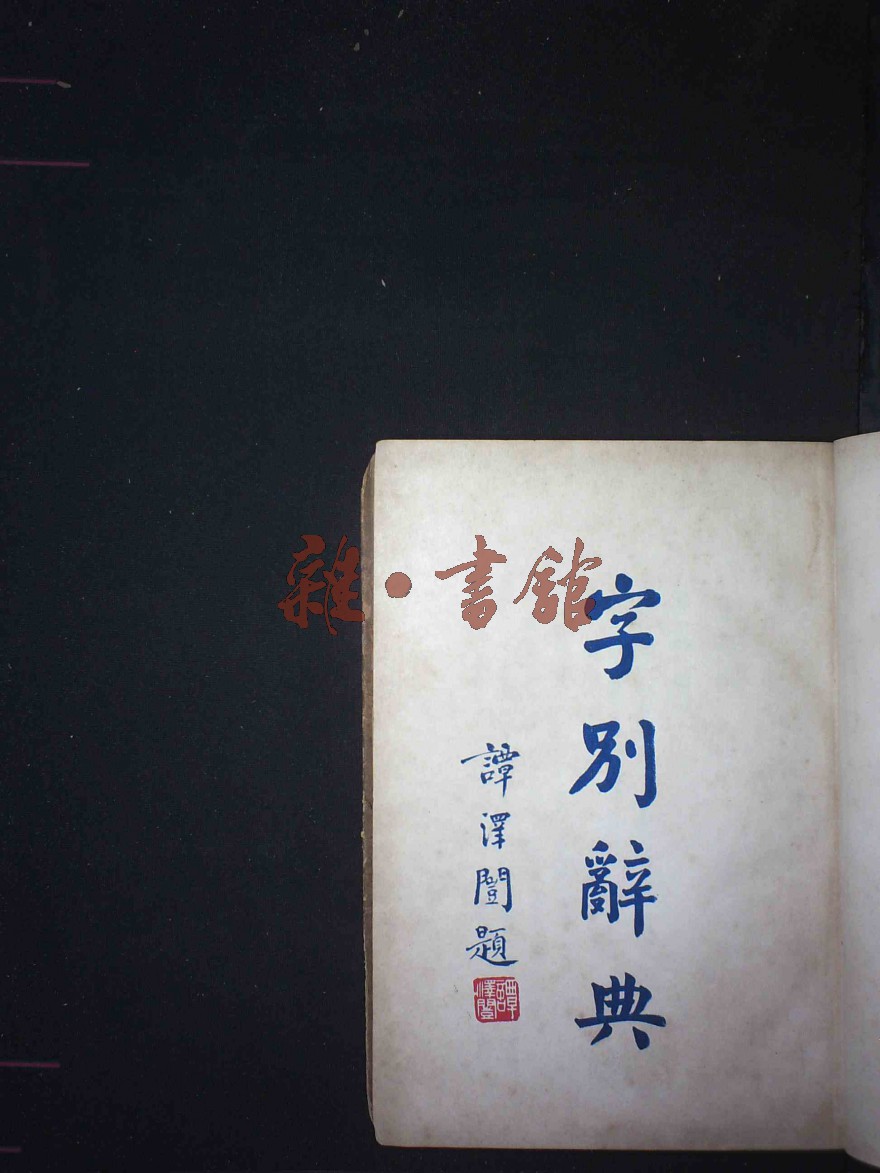 雜·書館
字別辭典
譚澤闓題
譚澤闓